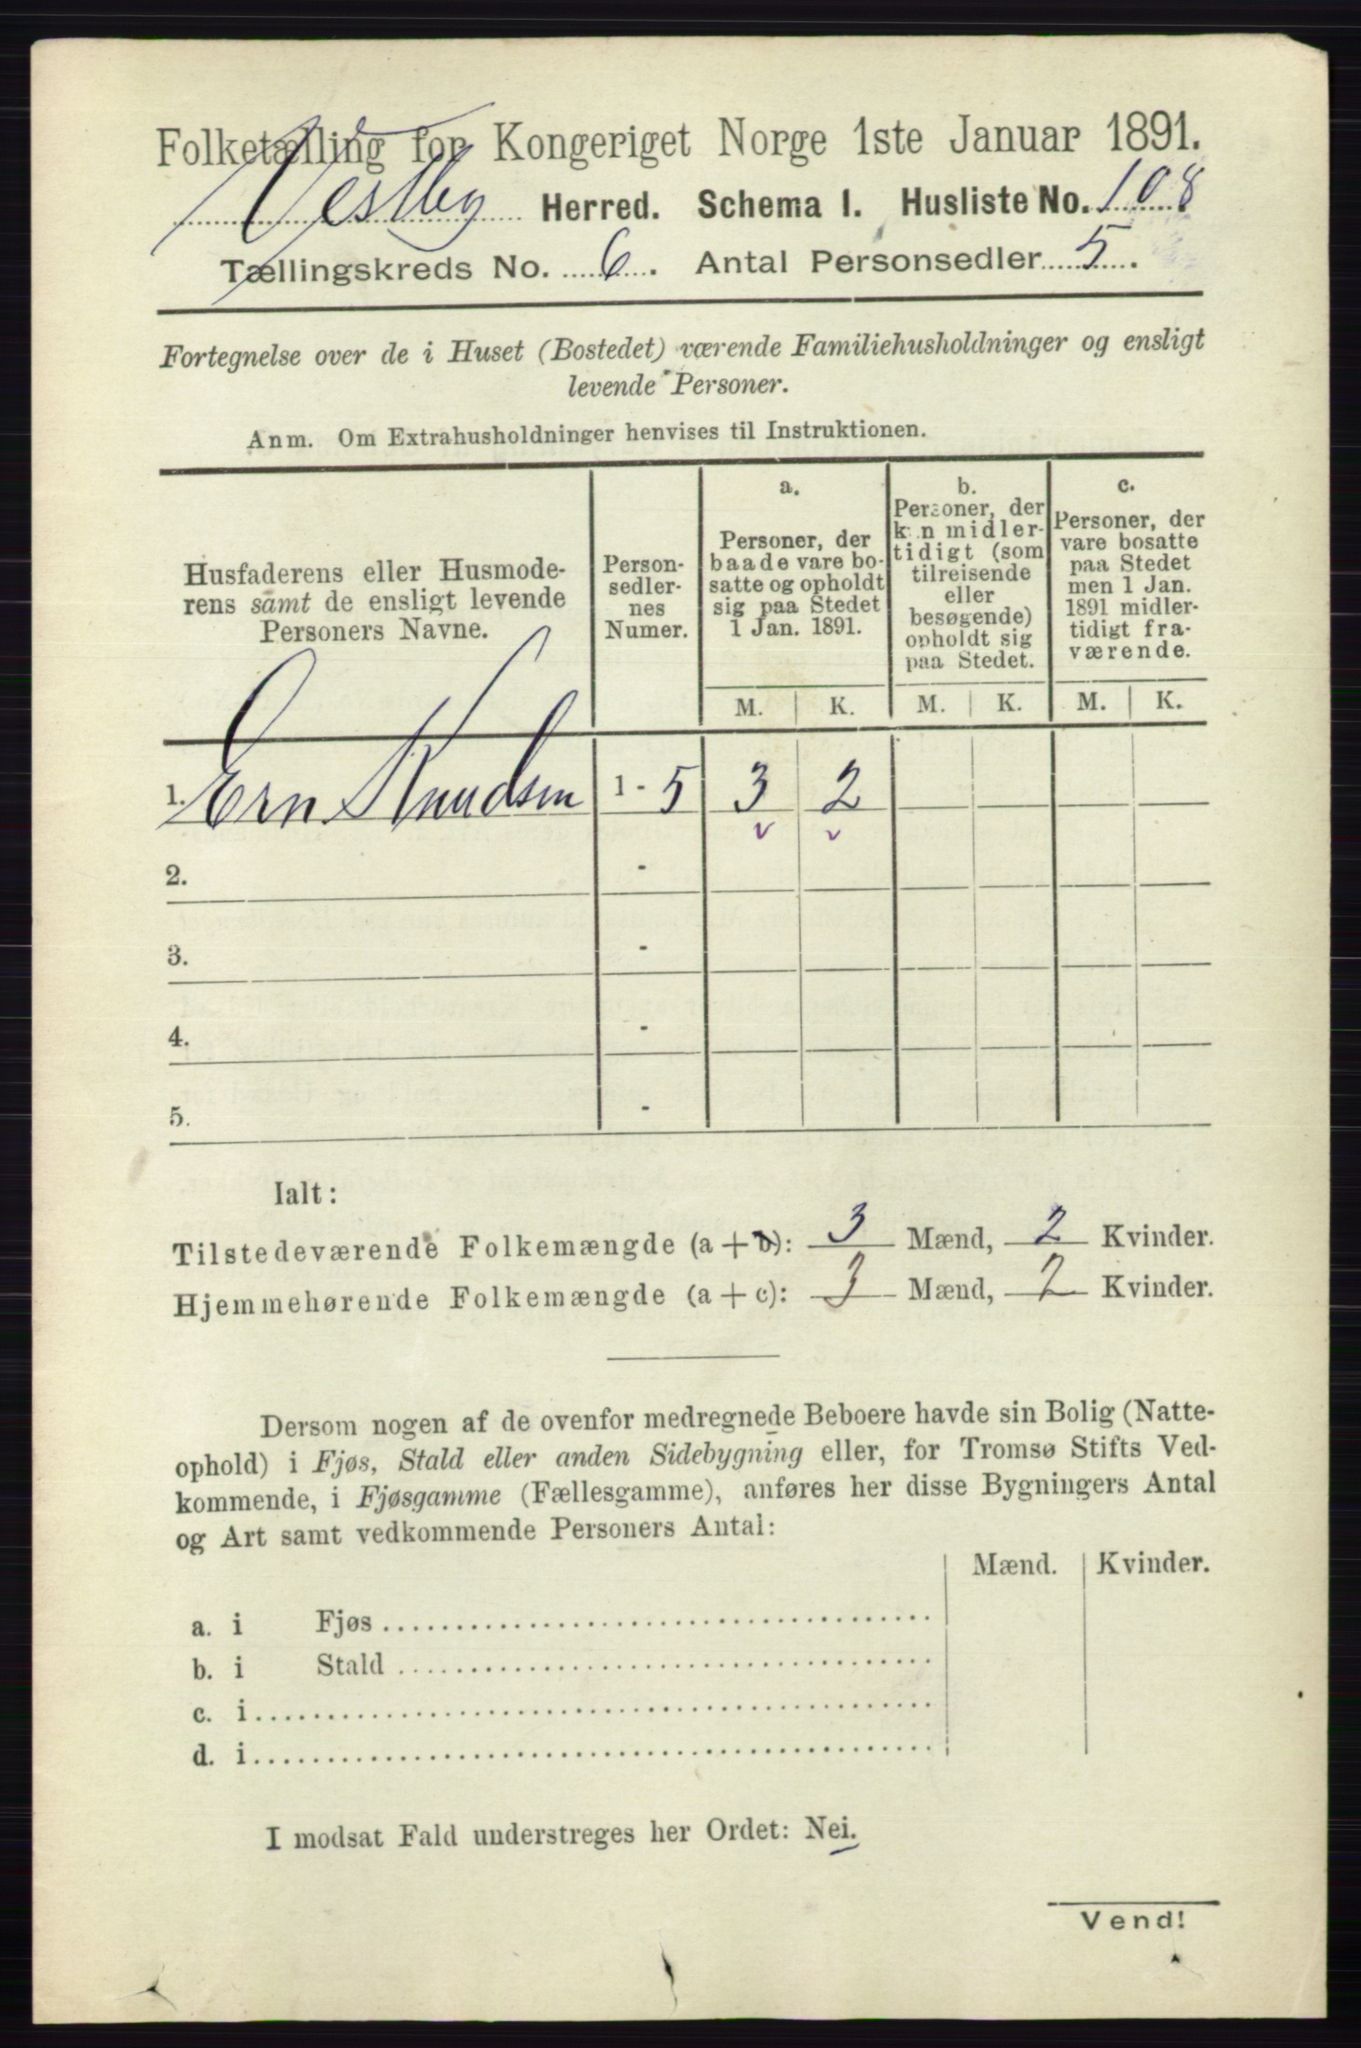 Folketælling for Kongeriget Norge 1ste Januar 1891.
Vestby Herred. Schema I. Husliste No. 108
Tællingskreds No. 6. Antal Personsedler 5.
Fortegnelse over de i Huset (Bostedet) værende Familiehusholdninger og ensligt
levende Personer.
Anm. Om Extrahusholdninger henvises til Instruktionen.
Husfaderens eller Husmode-
rens samt de ensligt levende
Personers Navne.
Person-
sedler-
nes
Numer.
a.
Personer, der
baade vare bo-
satte og opholdt
sig paa Stedet
1 Jan. 1891.
b.
Personer, der
kun midler-
tidigt (som
tilreisende
eller
besøgende)
opholdt sig
paa Stedet.
c.
Personer, der
vare bosatte
paa Stedet
men 1 Jan.
1891 midler-
tidigt fra-
værende.
M. K. M. K. M. K.
1. Ern Knudsen 1 - 5 3 2
2. -
3. -
4. -
5. -
Ialt:
Tilstedeværende Folkemængde (a + b): 3 Mænd, 2 Kvinder.
Hjemmehørende Folkemængde (a + c): 3 Mænd, 2 Kvinder.
Dersom nogen af de ovenfor medregnede Beboere havde sin Bolig (Natte-
ophold) i Fjøs, Stald eller anden Sidebygning eller, for Tromsø Stifts Ved-
kommende, i Fjøsgamme (Fællesgamme), anføres her disse Bygningers Antal
og Art samt vedkommende Personers Antal:
Mænd. Kvinder.
a. i Fjøs
b. i Stald
c. i
d. i
I modsat Fald understreges her Ordet: Nei.
Vend!